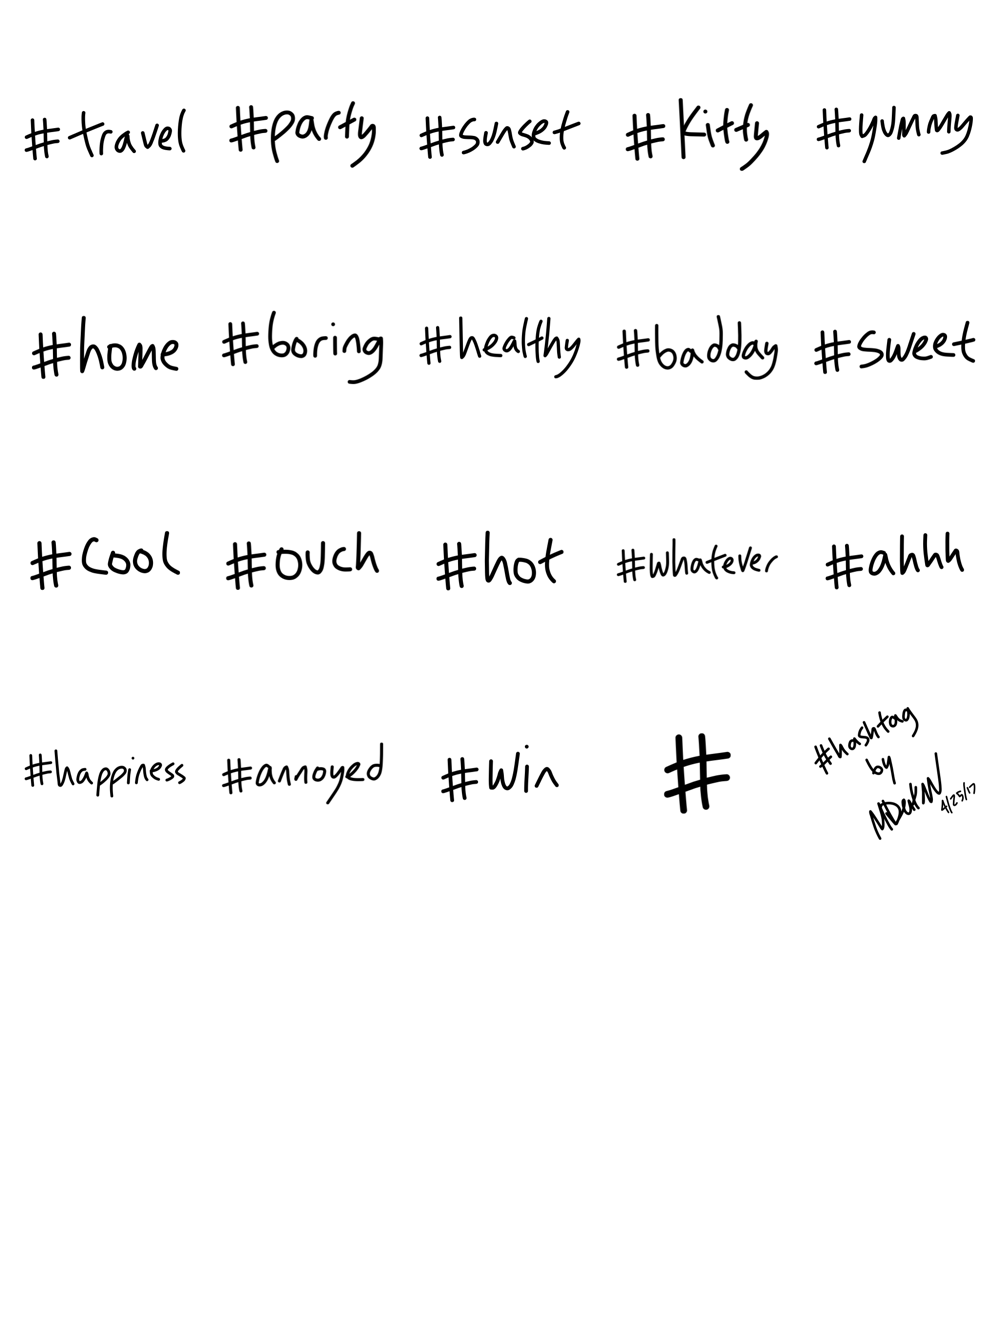 #travel #party #sunset #Kitty #yummy
#home #boring #healthy #badday #sweet
#Cool #ouch #hot #whatever #ahhh
#happiness #annoyed #win #
#hashtag
by
4/25/17